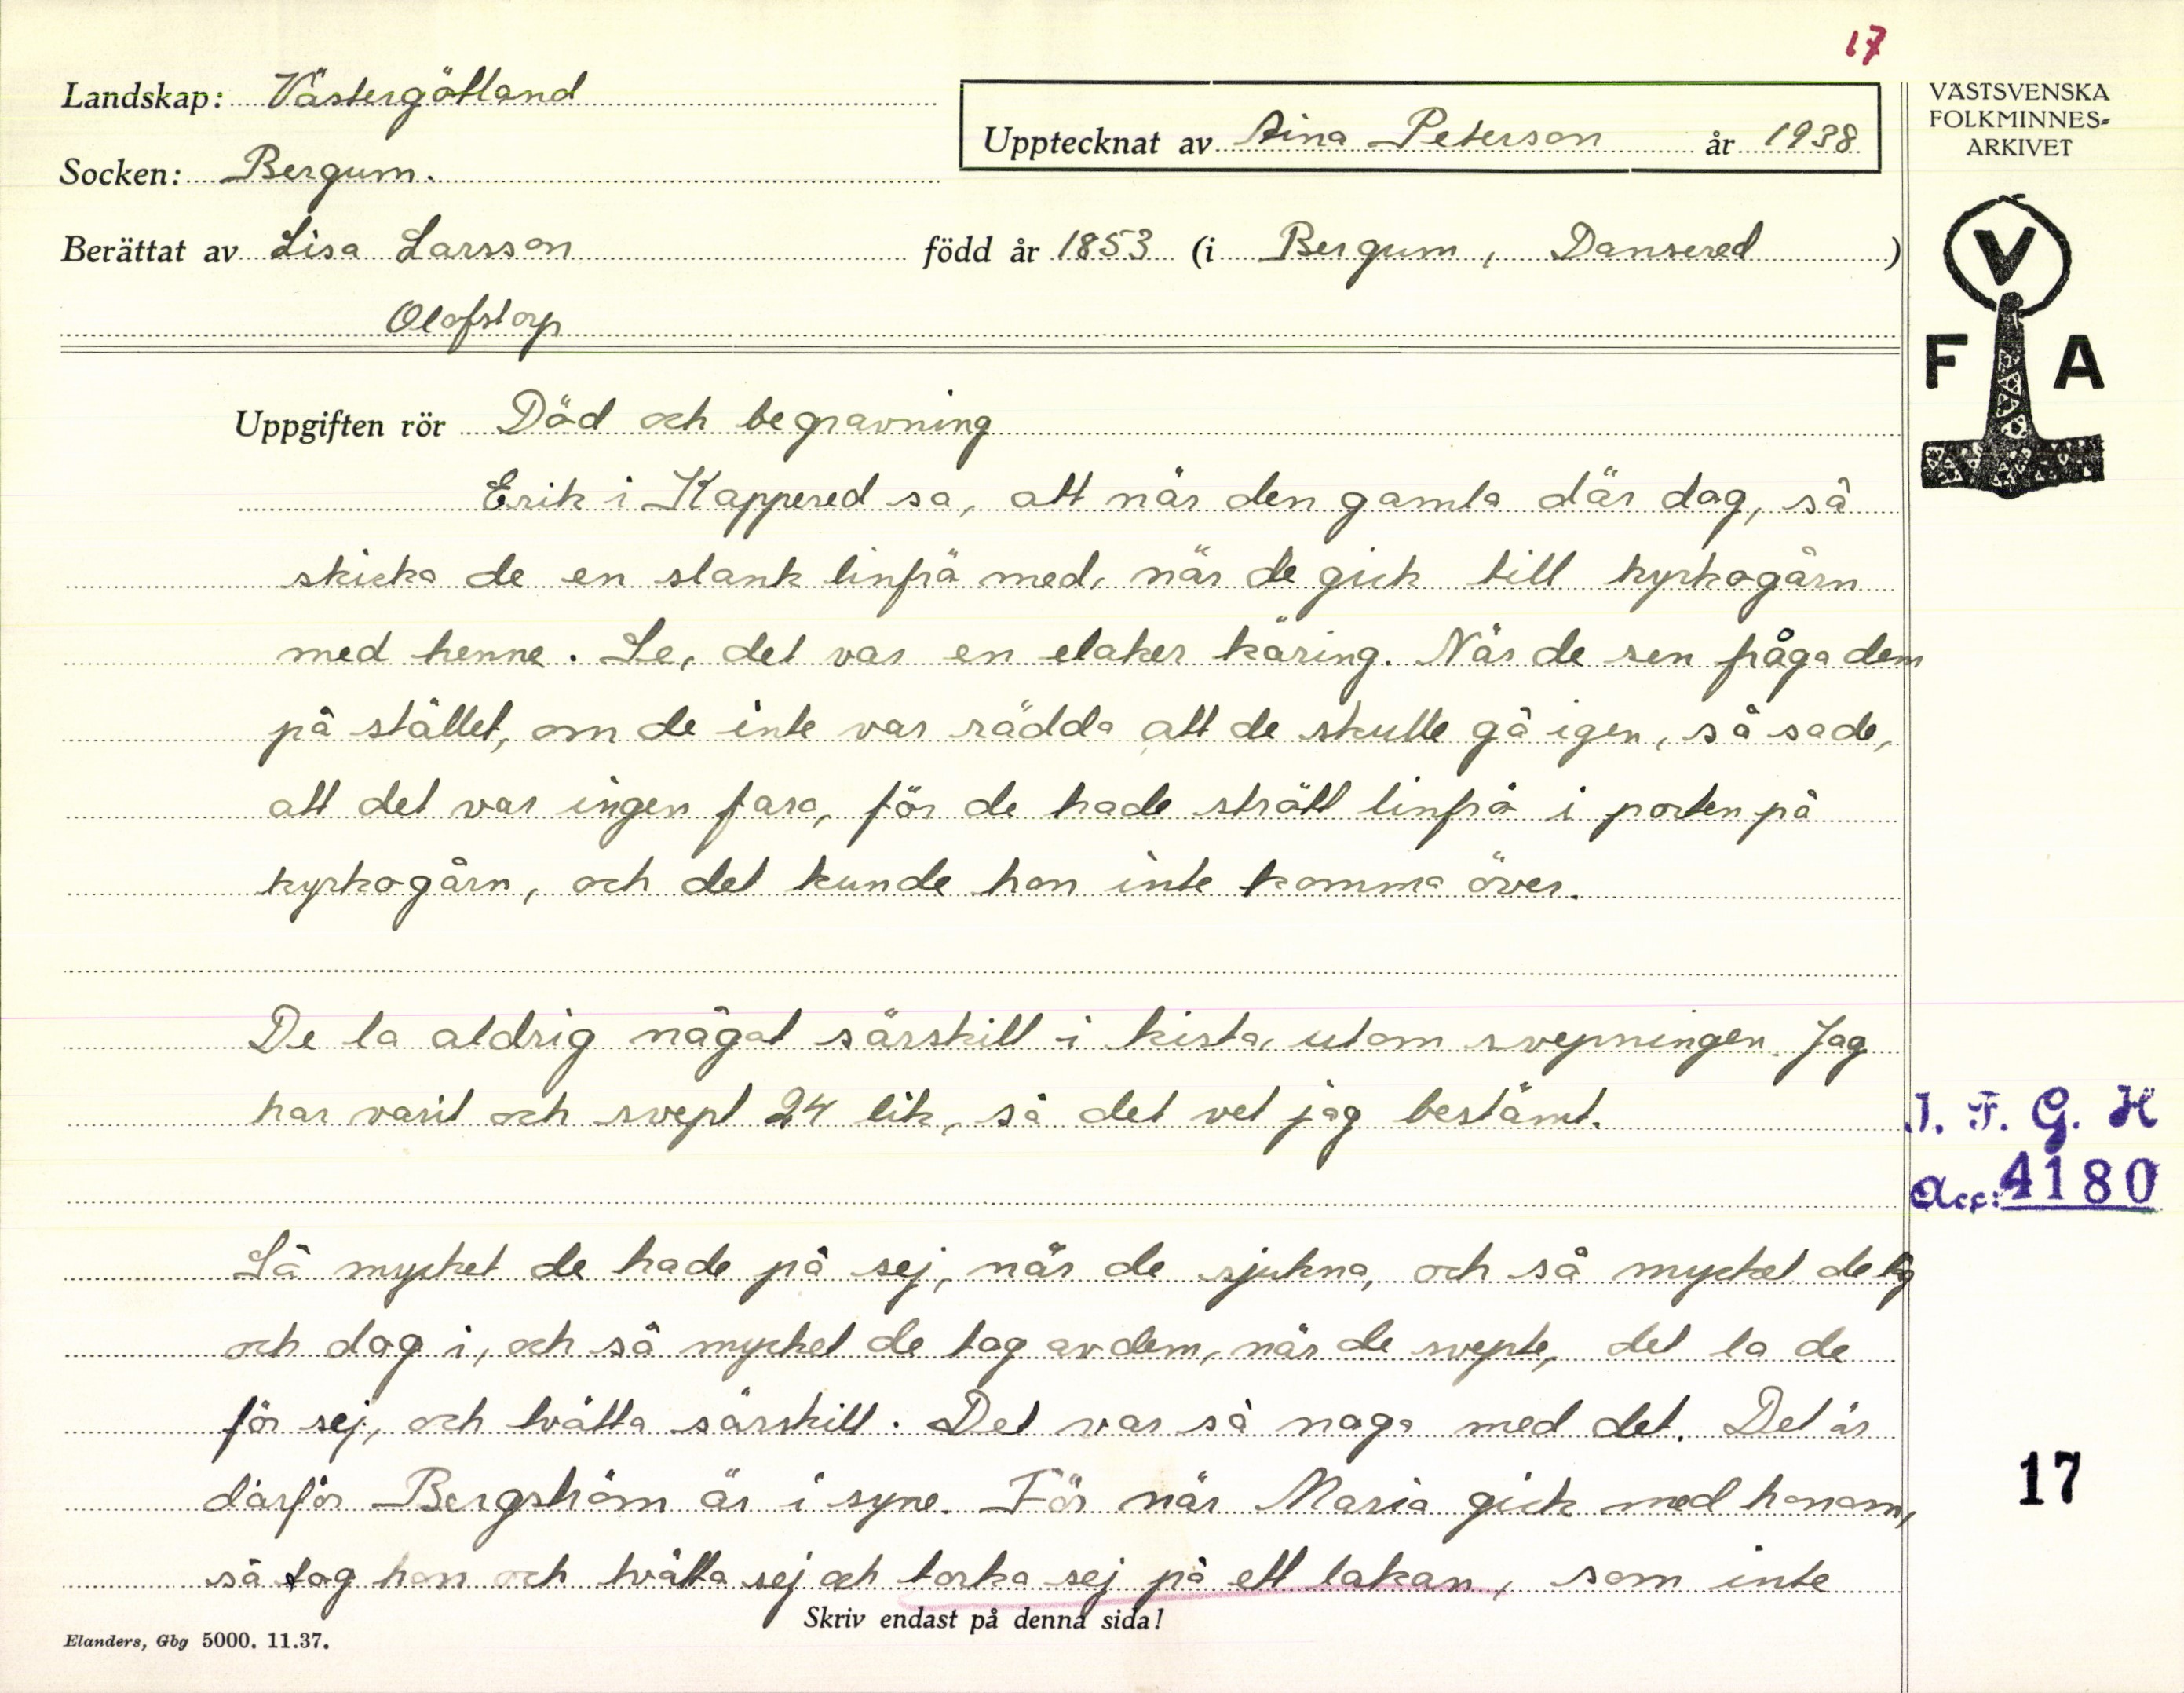 17
Landskap: Västergötland
Upptecknat av Aina Peterson år 1938
Socken: Bergum.
Berättat av Lisa Larsson född år 1853 (i Bergum, Dansered)
Olofstorp
VÄSTSVENSKA
FOLKMINNES=
ARKIVET
V
F A
Uppgiften rör Död och begravning
Erik i Kappered sa, att när den gamla där dog, så
skicka de en slank linfrö med, när de gick till kyrkogårn
med henne. Se, det var en elaker käring. När de sen fråga dem
på stället, om de inte var rädda att de skulle gå igen, så sade,
att det var ingen fara, för de hade strött linfrö i porten på
kyrkogårn, och det kunde hon inte komma över.
De la aldrig något särskilt i kista, utom svepningen. Jag
har varit och svept 24 lik, så det vet jag bestämt.
I. F. G. H
Acc: 4180
Så mycket de hade på sej, när de sjukna, och så mycket de låg
och dog i, och så mycket de tog av dem, när de svepte, det la de
för sej, och tvätta särskilt. Det var så noga med det. Det är
därför Bergström är i syne. För när Maria gick med honom,
så tog hon och tvätta sej och torka sej på ett lakan, som inte
17
Skriv endast på denna sida!
Elanders, Gbg 5000. 11.37.